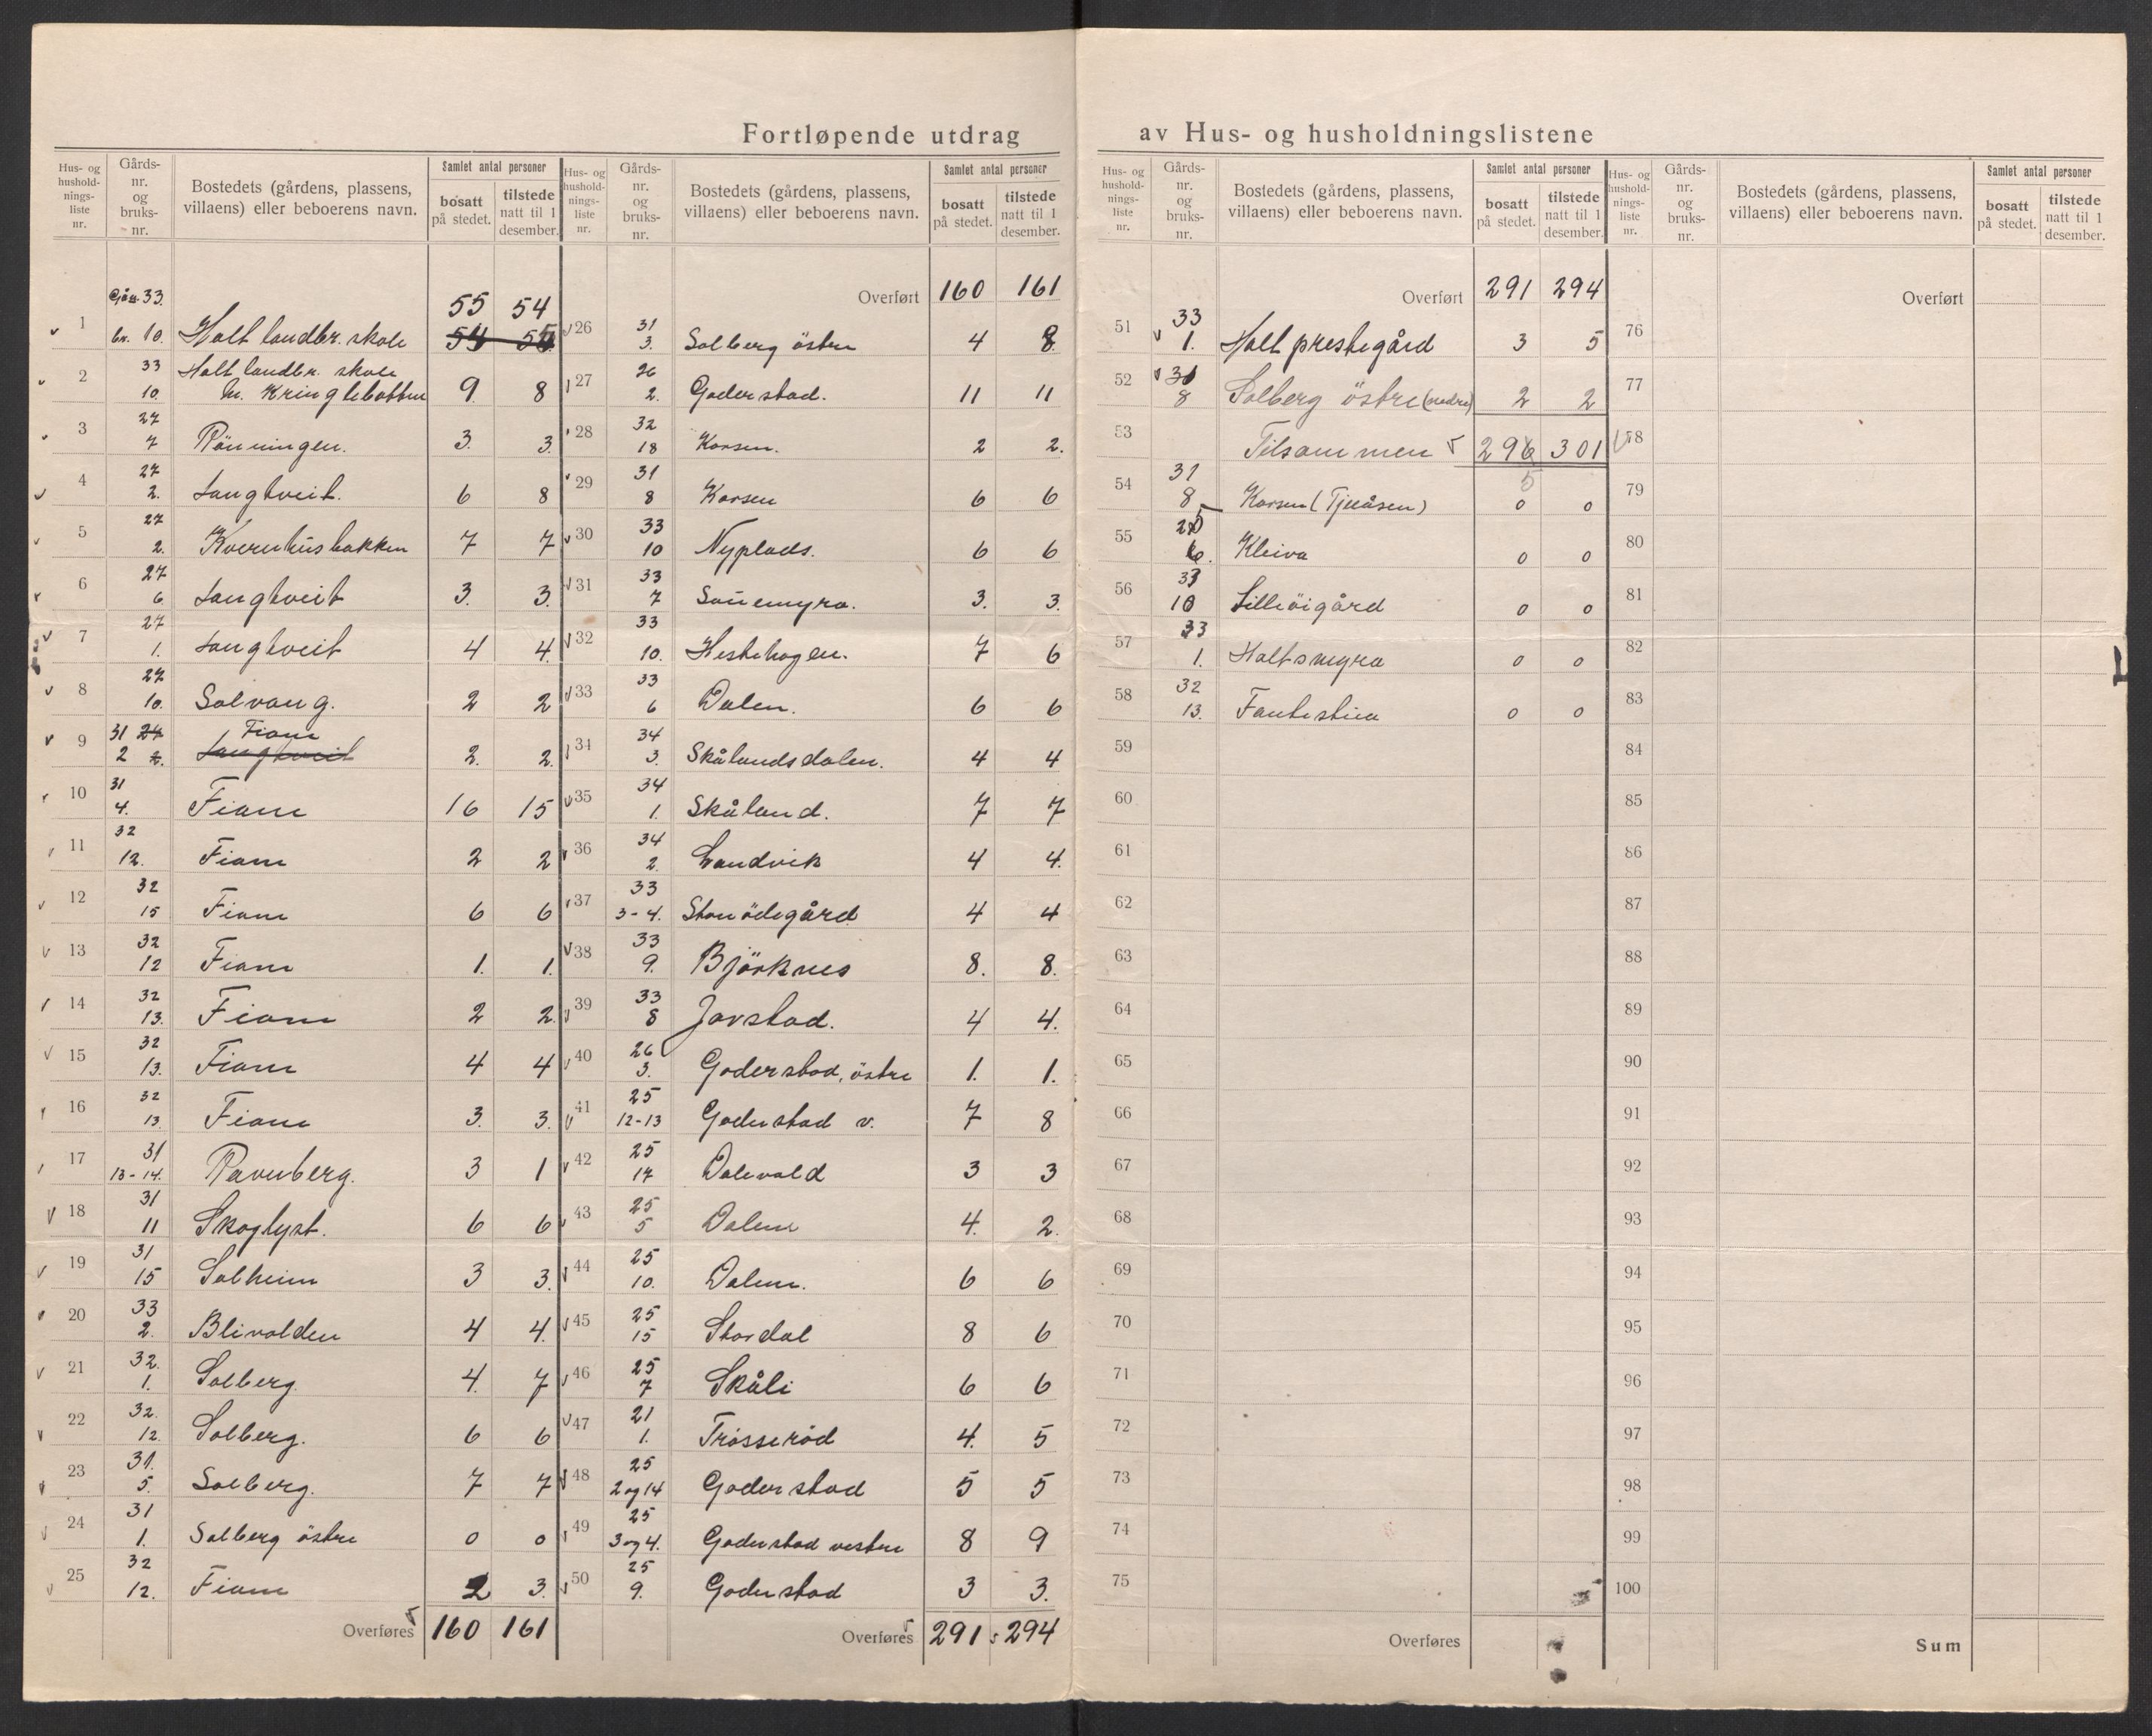 Fortløpende utdrag av Hus- og husholdningslistene
Hus- og hushold-nings-liste nr. | Gårds-nr. og bruks-nr. | Bostedets (gårdens, plassens, villaens) eller beboerens navn. | Samlet antal personer bosatt på stedet. | tilstede natt til 1 desember.
Gårn. 33. 55 54
1 bn. 10. Holt landbr. skole 54 55
2 33 10. Holt landbr. skole m. Kringlebotten 9 8
3 27 7 Rönningen. 3. 3.
4 27 2. Langtveit. 6 8
5 27 2. Kvernhusbakken 7 7
6 27 6 Langtveit 3. 3.
7 27 1. Langtveit 4 4.
8 27 10. Solvang. 2 2
9 31 27 2 2. Fiane Langtveit 2. 2.
10 31 4. Fiane 16 15
11 32 12. Fiane 2 2
12 32 15 Fiane 6 6
13 32 12 Fiane 1. 1.
14 32 13. Fiane 2 2.
15 32 13. Fiane 4 4
16 32 13. Fiane 3. 3.
17 31 13-14. Ravneberg. 3 1
18 31 11 Skoglyst. 6 6
19 31 15 Solheim 3 3.
20 33 2. Blivolden 4 4.
21 32. 1. Solberg. 4. 7
22 32. 12. Solberg. 6 6
23 31. 5. Solberg. 7 7
24 31 1. Solberg östre 0 0
25 32 12. Fiane 2 3.
Overføres 160 161
Hus- og hushold-nings-liste nr. | Gårds-nr. og bruks-nr. | Bostedets (gårdens, plassens, villaens) eller beboerens navn. | Samlet antal personer bosatt på stedet. | tilstede natt til 1 desember.
Overført 160 161
26 31 3. Solberg östre 4 8.
27 26 2. Goderstad. 11 11
28 32 18 Korsen. 2 2.
29 31 8 Korsen 6 6
30 33 10 Nyplads. 6 6
31 33 7 Sauemyra. 3. 3.
32 33 10. Hestehagen. 7 6
33 33 6 Dalen. 6 6
34 34 3. Skålandsdalen. 4 4
35 34 1. Skåland. 7 7
36 34 2. Landvik 4 4.
37 33 3-4. Stenödegård 4 4
38 33 9. Björknes 8. 8.
39 33 8 Jorstad. 4 4.
40 26 3. Goderstad, östre 1. 1.
41 25 12-13 Goderstad v. 7 8
42 25 17 Dalevold 3 3
43 25 5 Dalene 4. 2.
44 25 10. Dalene. 6 6
45 25 15 Stordal 8 6
46 25 7 Skåli 6 6
47 21 1. Trösseröd 4. 5
48 25 2 og 14 Goderstad 5 5
49 25 3 og 4. Goderstad vestre 8 9
50 25 9. Goderstad 3 3.
Overføres 291 294
Hus- og hushold-nings-liste nr. | Gårds-nr. og bruks-nr. | Bostedets (gårdens, plassens, villaens) eller beboerens navn. | Samlet antal personer bosatt på stedet. | tilstede natt til 1 desember.
Overført 291 294
51 33 1. Holt prestegård 3 5
52 31 8 Solberg östre (nedre) 2 2
53 Tilsammen 296 301
5
54 31 8 Korsen (Tjeåsen) 0 0
55 25 6. Kleiva 0 0
56 33 10 Lilleöigård 0 0
57 33 1. Holtsmyra 0 0
58 32 13. Fantestien 0 0
59
60
61
62
63
64
65
66
67
68
69
70
71
72
73
74
75
Overføres
Hus- og hushold-nings-liste nr. | Gårds-nr. og bruks-nr. | Bostedets (gårdens, plassens, villaens) eller beboerens navn. | Samlet antal personer bosatt på stedet. | tilstede natt til 1 desember.
Overført
76
77
78
79
80
81
82
83
84
85
86
87
88
89
90
91
92
93
94
95
96
97
98
99
100
Sum